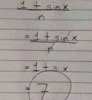 1 + sin x
n
= 1 + sin x
n
= 1 + 6
= 7